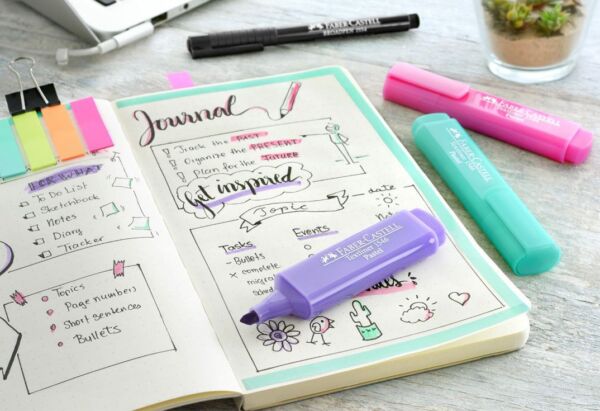 FABER-CASTELL
BROADPEN 1554
FOR WHAT
To Do List
Sketchbook
Notes
Diary
Tracker
Topics
Page numbers
Short sentences
Bullets
Journal
Track the PAST
Organize the PRESENT
Plan for the FUTURE
Get inspired
Topic
date
Tasks
- Bullets
x complete
Events
FABER-CASTELL
Textliner 1546
Pastel
FABER-CASTELL
FABER-CASTELL
Pastel